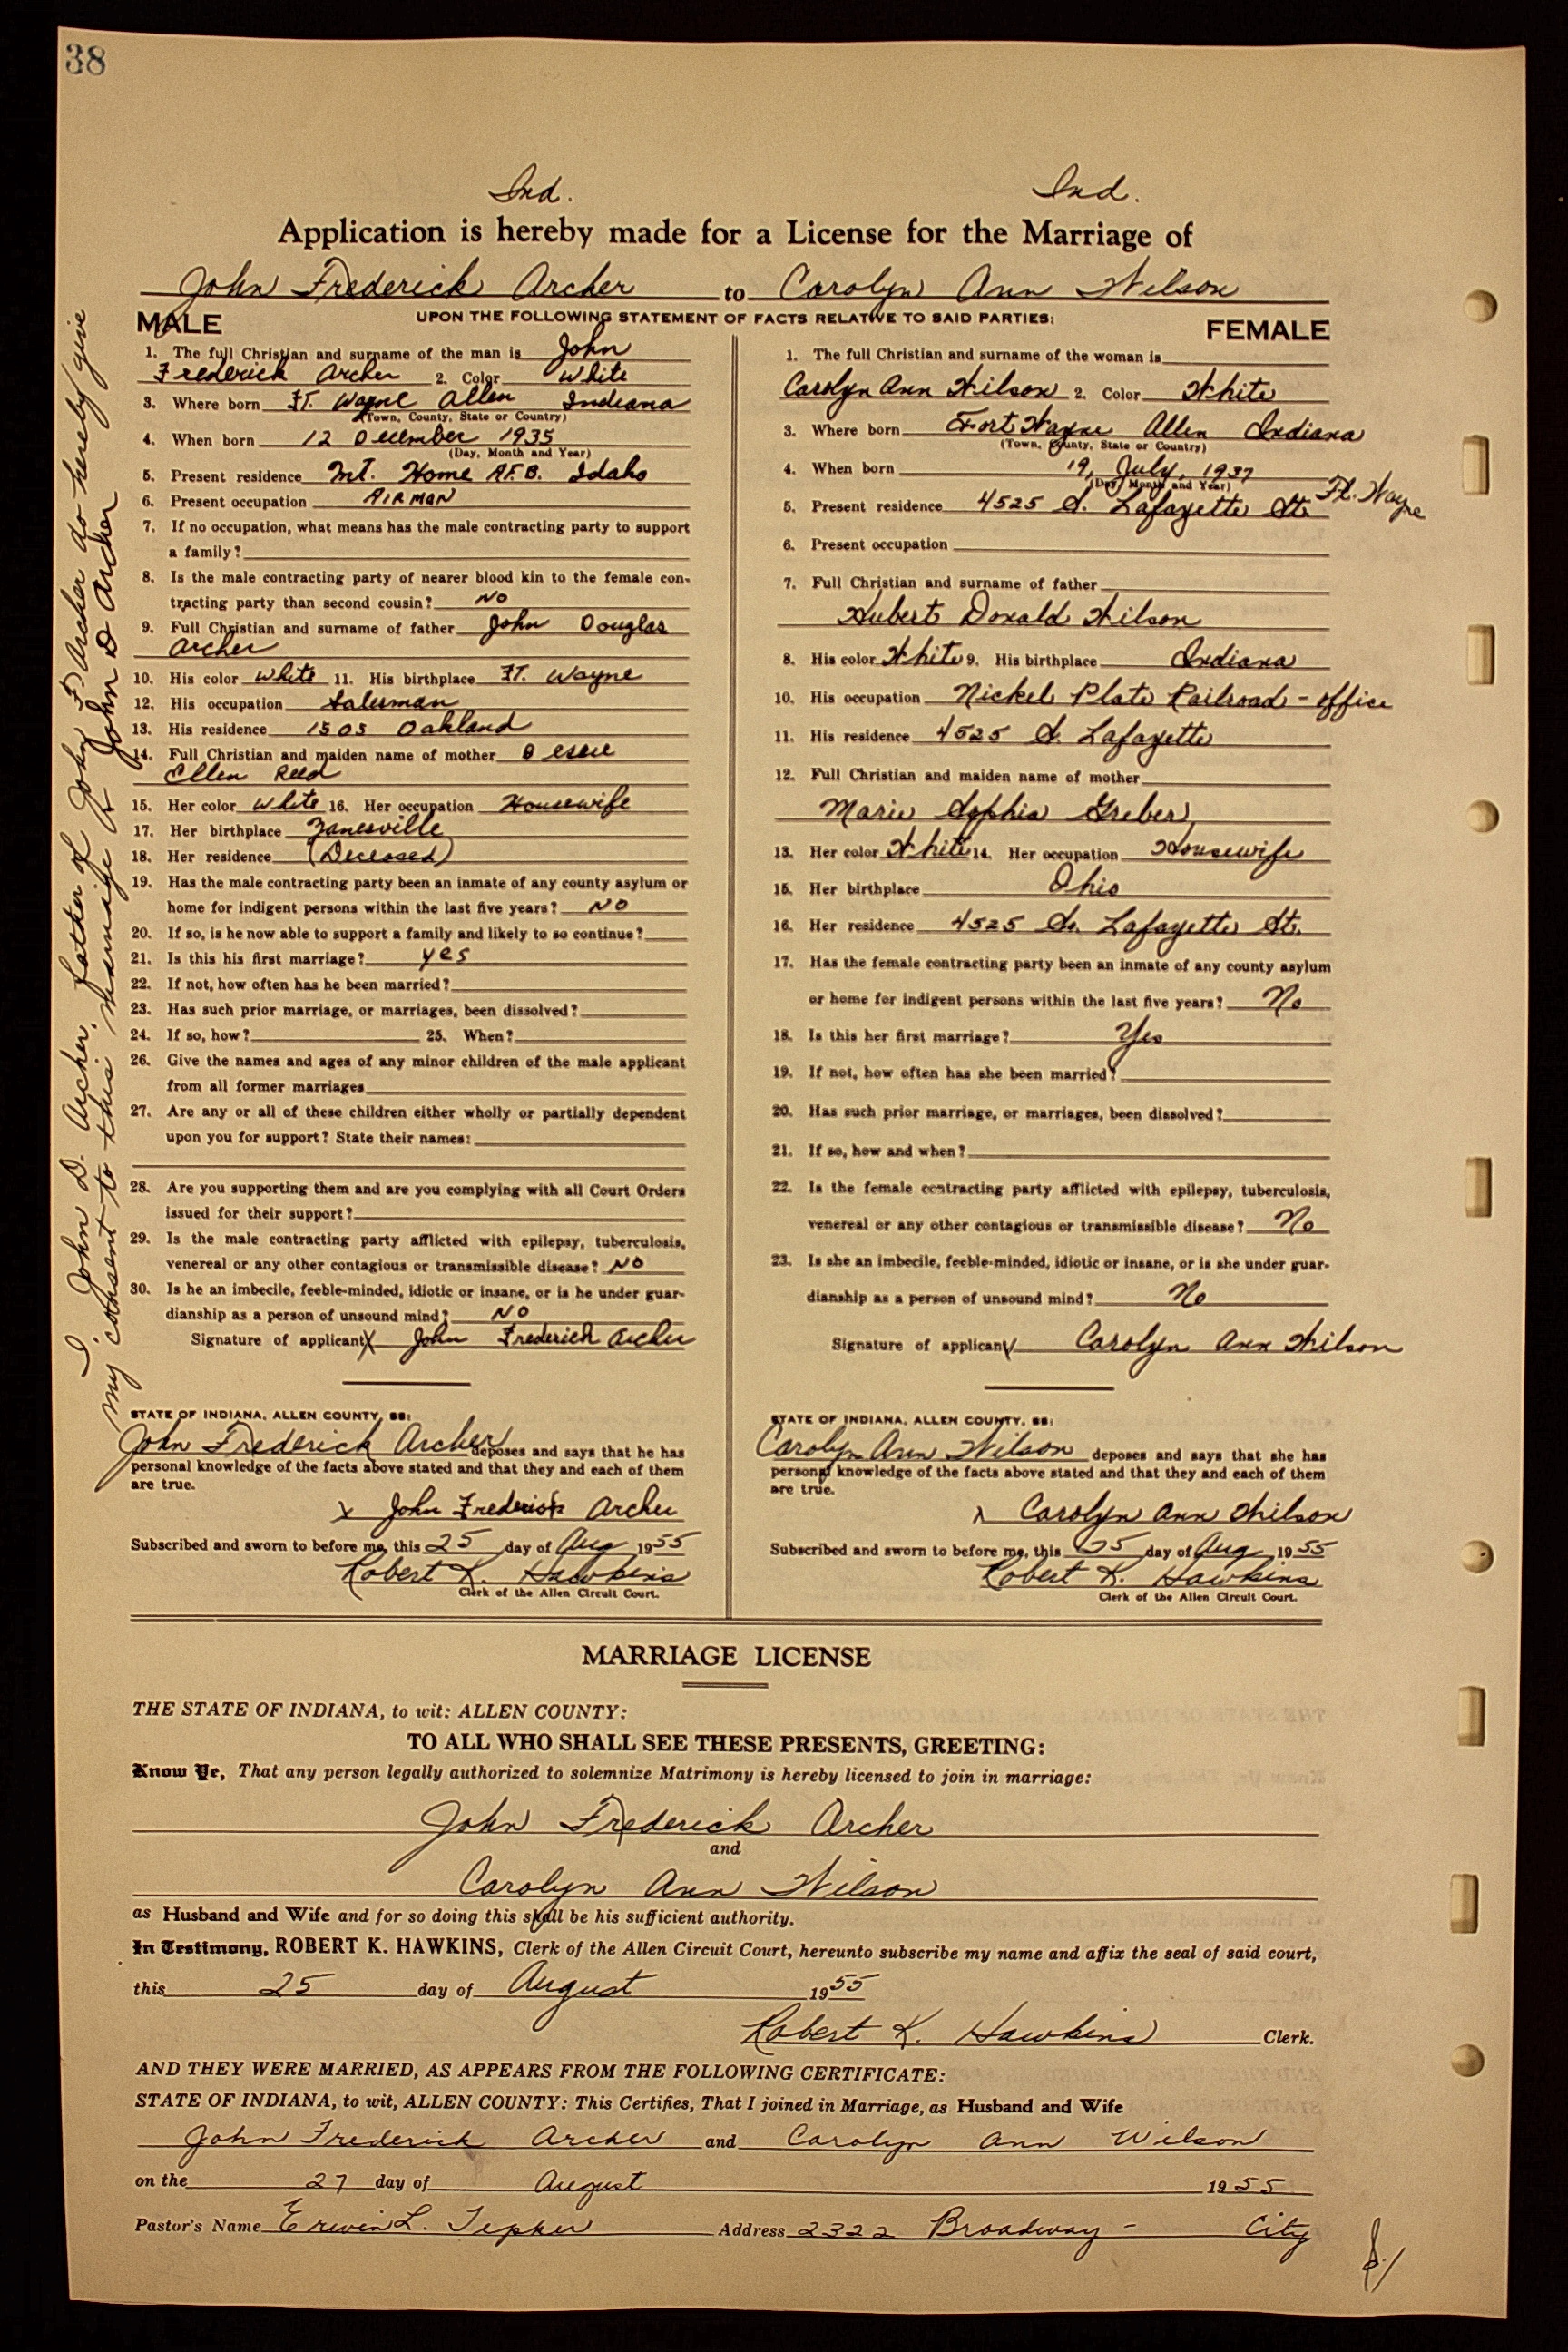 38
Ind. Ind.
Application is hereby made for a License for the Marriage of
John Frederick Archer to Carolyn Ann Wilson
UPON THE FOLLOWING STATEMENT OF FACTS RELATIVE TO SAID PARTIES:
MALE
1. The full Christian and surname of the man is John
Frederick Archer 2. Color White
3. Where born Ft. Wayne Allen Indiana
(Town, County, State or Country)
4. When born 12 December 1935
(Day, Month and Year)
5. Present residence Mt. Home A.F.B. Idaho
6. Present occupation AIRMAN
7. If no occupation, what means has the male contracting party to support
a family?
8. Is the male contracting party of nearer blood kin to the female con-
tracting party than second cousin? NO
9. Full Christian and surname of father John Douglas
Archer
10. His color White 11. His birthplace Ft. Wayne
12. His occupation Salesman
13. His residence 1503 Oakland
14. Full Christian and maiden name of mother
Ellen Reed
15. Her color White 16. Her occupation Housewife
17. Her birthplace Zanesville
18. Her residence (Deceased)
19. Has the male contracting party been an inmate of any county asylum or
home for indigent persons within the last five years? NO
20. If so, is he now able to support a family and likely to so continue?
21. Is this his first marriage? yes
22. If not, how often has he been married?
23. Has such prior marriage, or marriages, been dissolved?
24. If so, how? 25. When?
26. Give the names and ages of any minor children of the male applicant
from all former marriages
27. Are any or all of these children either wholly or partially dependent
upon you for support? State their names:
28. Are you supporting them and are you complying with all Court Orders
issued for their support?
29. Is the male contracting party afflicted with epilepsy, tuberculosis,
venereal or any other contagious or transmissible disease? NO
30. Is he an imbecile, feeble-minded, idiotic or insane, or is he under guar-
dianship as a person of unsound mind? NO
Signature of applicant X John Frederick Archer
STATE OF INDIANA, ALLEN COUNTY, SS:
John Frederick Archer deposes and says that he has
personal knowledge of the facts above stated and that they and each of them
are true.
x John Frederick Archer
Subscribed and sworn to before me, this 25 day of Aug 1955
Robert K. Hawkins
Clerk of the Allen Circuit Court.
I, John D. Archer, father of John F. Archer do hereby give
my consent to this marriage X John D Archer
FEMALE
1. The full Christian and surname of the woman is
Carolyn Ann Wilson 2. Color White
3. Where born Fort Wayne Allen Indiana
(Town, County, State or Country)
4. When born 19, July, 1937
(Day, Month and Year)
5. Present residence 4525 S. Lafayette St. Ft. Wayne
6. Present occupation
7. Full Christian and surname of father
Hubert Donald Wilson
8. His color White 9. His birthplace Indiana
10. His occupation Nickel Plate Railroad - office
11. His residence 4525 S. Lafayette
12. Full Christian and maiden name of mother
Marie Sophia Greber
13. Her color White 14. Her occupation Housewife
15. Her birthplace Ohio
16. Her residence 4525 So. Lafayette St.
17. Has the female contracting party been an inmate of any county asylum
or home for indigent persons within the last five years? No
18. Is this her first marriage? Yes
19. If not, how often has she been married?
20. Has such prior marriage, or marriages, been dissolved?
21. If so, how and when?
22. Is the female contracting party afflicted with epilepsy, tuberculosis,
venereal or any other contagious or transmissible disease? No
23. Is she an imbecile, feeble-minded, idiotic or insane, or is she under guar-
dianship as a person of unsound mind? No
Signature of applicant Carolyn Ann Wilson
STATE OF INDIANA, ALLEN COUNTY, SS:
Carolyn Ann Wilson deposes and says that she has
personal knowledge of the facts above stated and that they and each of them
are true.
x Carolyn Ann Wilson
Subscribed and sworn to before me, this 25 day of Aug 1955
Robert K. Hawkins
Clerk of the Allen Circuit Court.
MARRIAGE LICENSE
THE STATE OF INDIANA, to wit: ALLEN COUNTY:
TO ALL WHO SHALL SEE THESE PRESENTS, GREETING:
Know Ye, That any person legally authorized to solemnize Matrimony is hereby licensed to join in marriage:
John Frederick Archer
and
Carolyn Ann Wilson
as Husband and Wife and for so doing this shall be his sufficient authority.
In Testimony, ROBERT K. HAWKINS, Clerk of the Allen Circuit Court, hereunto subscribe my name and affix the seal of said court,
this 25 day of August 1955
Robert K. Hawkins Clerk.
AND THEY WERE MARRIED, AS APPEARS FROM THE FOLLOWING CERTIFICATE:
STATE OF INDIANA, to wit, ALLEN COUNTY: This Certifies, That I joined in Marriage, as Husband and Wife
John Frederick Archer and Carolyn Ann Wilson
on the 27 day of August 1955
Pastor's Name Erwin L. Tepker Address 2322 Broadway - City